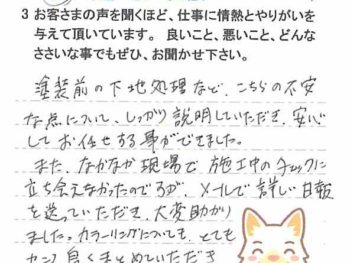 3 お客さまの声を聞くほど、仕事に情熱とやりがいを
与えて頂いています。 良いこと、悪いこと、どんな
ささいな事でもぜひ、お聞かせ下さい。
塗装前の下地処理など、こちらの不安
な点について、しっかり説明していただき、安心
してお任せする事ができました。
また、なかなか現場で施工中のチェックに
立ち会えなかったのですが、メールで詳しい日報
を送っていただき、大変助かり
ました。カラーリングについても、とても
センス良くまとめていただき